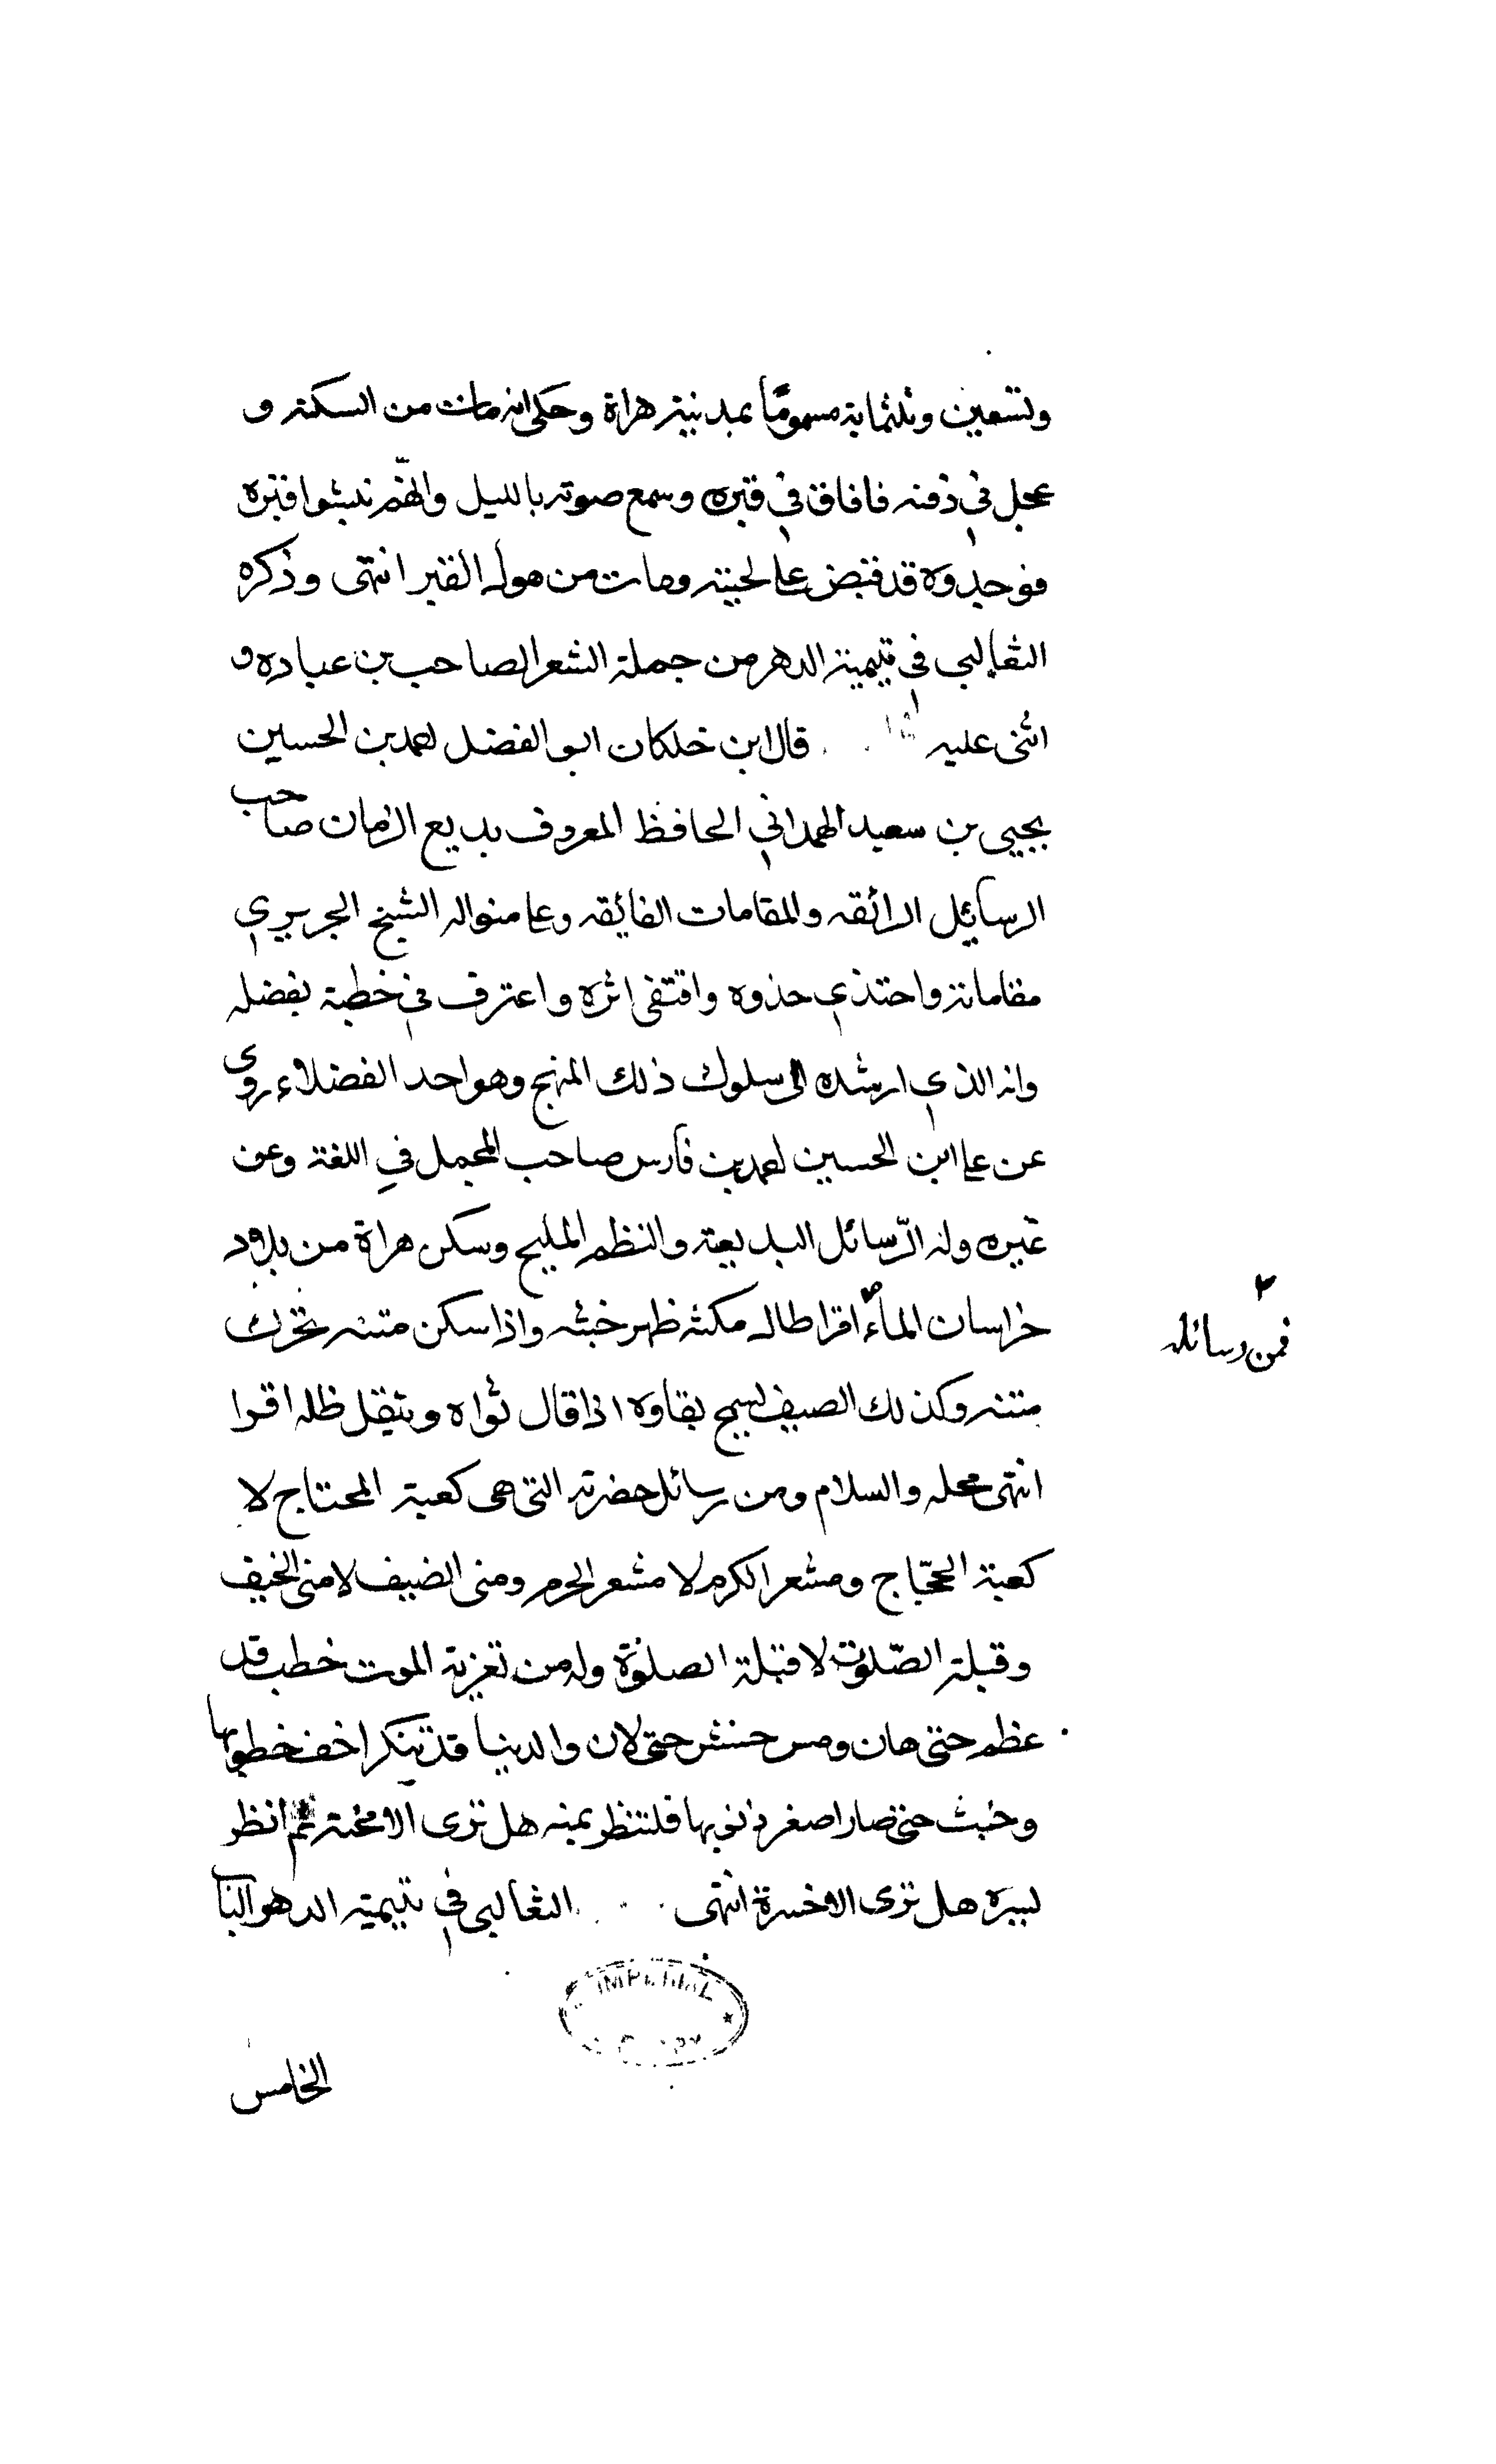 وتسعين وثلثماية مسموماً بمدينة هراة وحكى انه مات من السكتة و
عجل في دفنه فافاق في قبره وسمع صوته بالليل وانهم نبشوا قبره
فوجدوه قد قبض على لحيته ومات من هول القبر انتهى وذكره
الثعالبي في يتيمة الدهر من جملة الشعر الصاحب بن عباده و
اثنى عليه قال ابن خلكان ابو الفضل احمد بن الحسين
يحيى بن سعيد الهمداني الحافظ المعروف ببديع الزمان صاحب
الرسايل الرائقه والمقامات الفايقه وعلى منواله الشيخ الحريري
مقاماته واحتذى حذوه واقتفى اثره واعترف في خطبة بفضله
وانه الذي ارشده الى سلوك ذلك المنهج وهو احد الفضلاء روى
عن على ابن الحسين احمد بن فارس صاحب المجمل في اللغة وعن
غيره وله الرّسائل البديعة والنظم المليح وسكن هراة من بلاد
خراسان الماء اذا طال مكثه ظهر خبثه واذا سكن متنه تحرك
فمن رسائله
متنه وكذلك الصيف يسمج بقاوه اذا قال ثواه ويثقل ظله اقرا
انتهى محله والسلام ومن رسائل حضرته التى هى كعبة المحتاج لا
كعبة الحجّاج ومشعر الكرم لا مشعر الحرم ومنى الضيف لا منى الخيف
وقبلة الصّلوت لا قبلة الصلوة وله من تعزية الموت خطب قد
عظم حتى هان ومس خشن حتى لان والدنيا قد تنكر اخف خطوبها
وخبث حتى صار اصغر ذنوبها فلتنظر يمنه هل ترى الا محنة ثم انظر
يسره هل ترى الا خسرة انتهى الثعالبي في يتيمة الدهر البا
IMPERIAL
الخامس